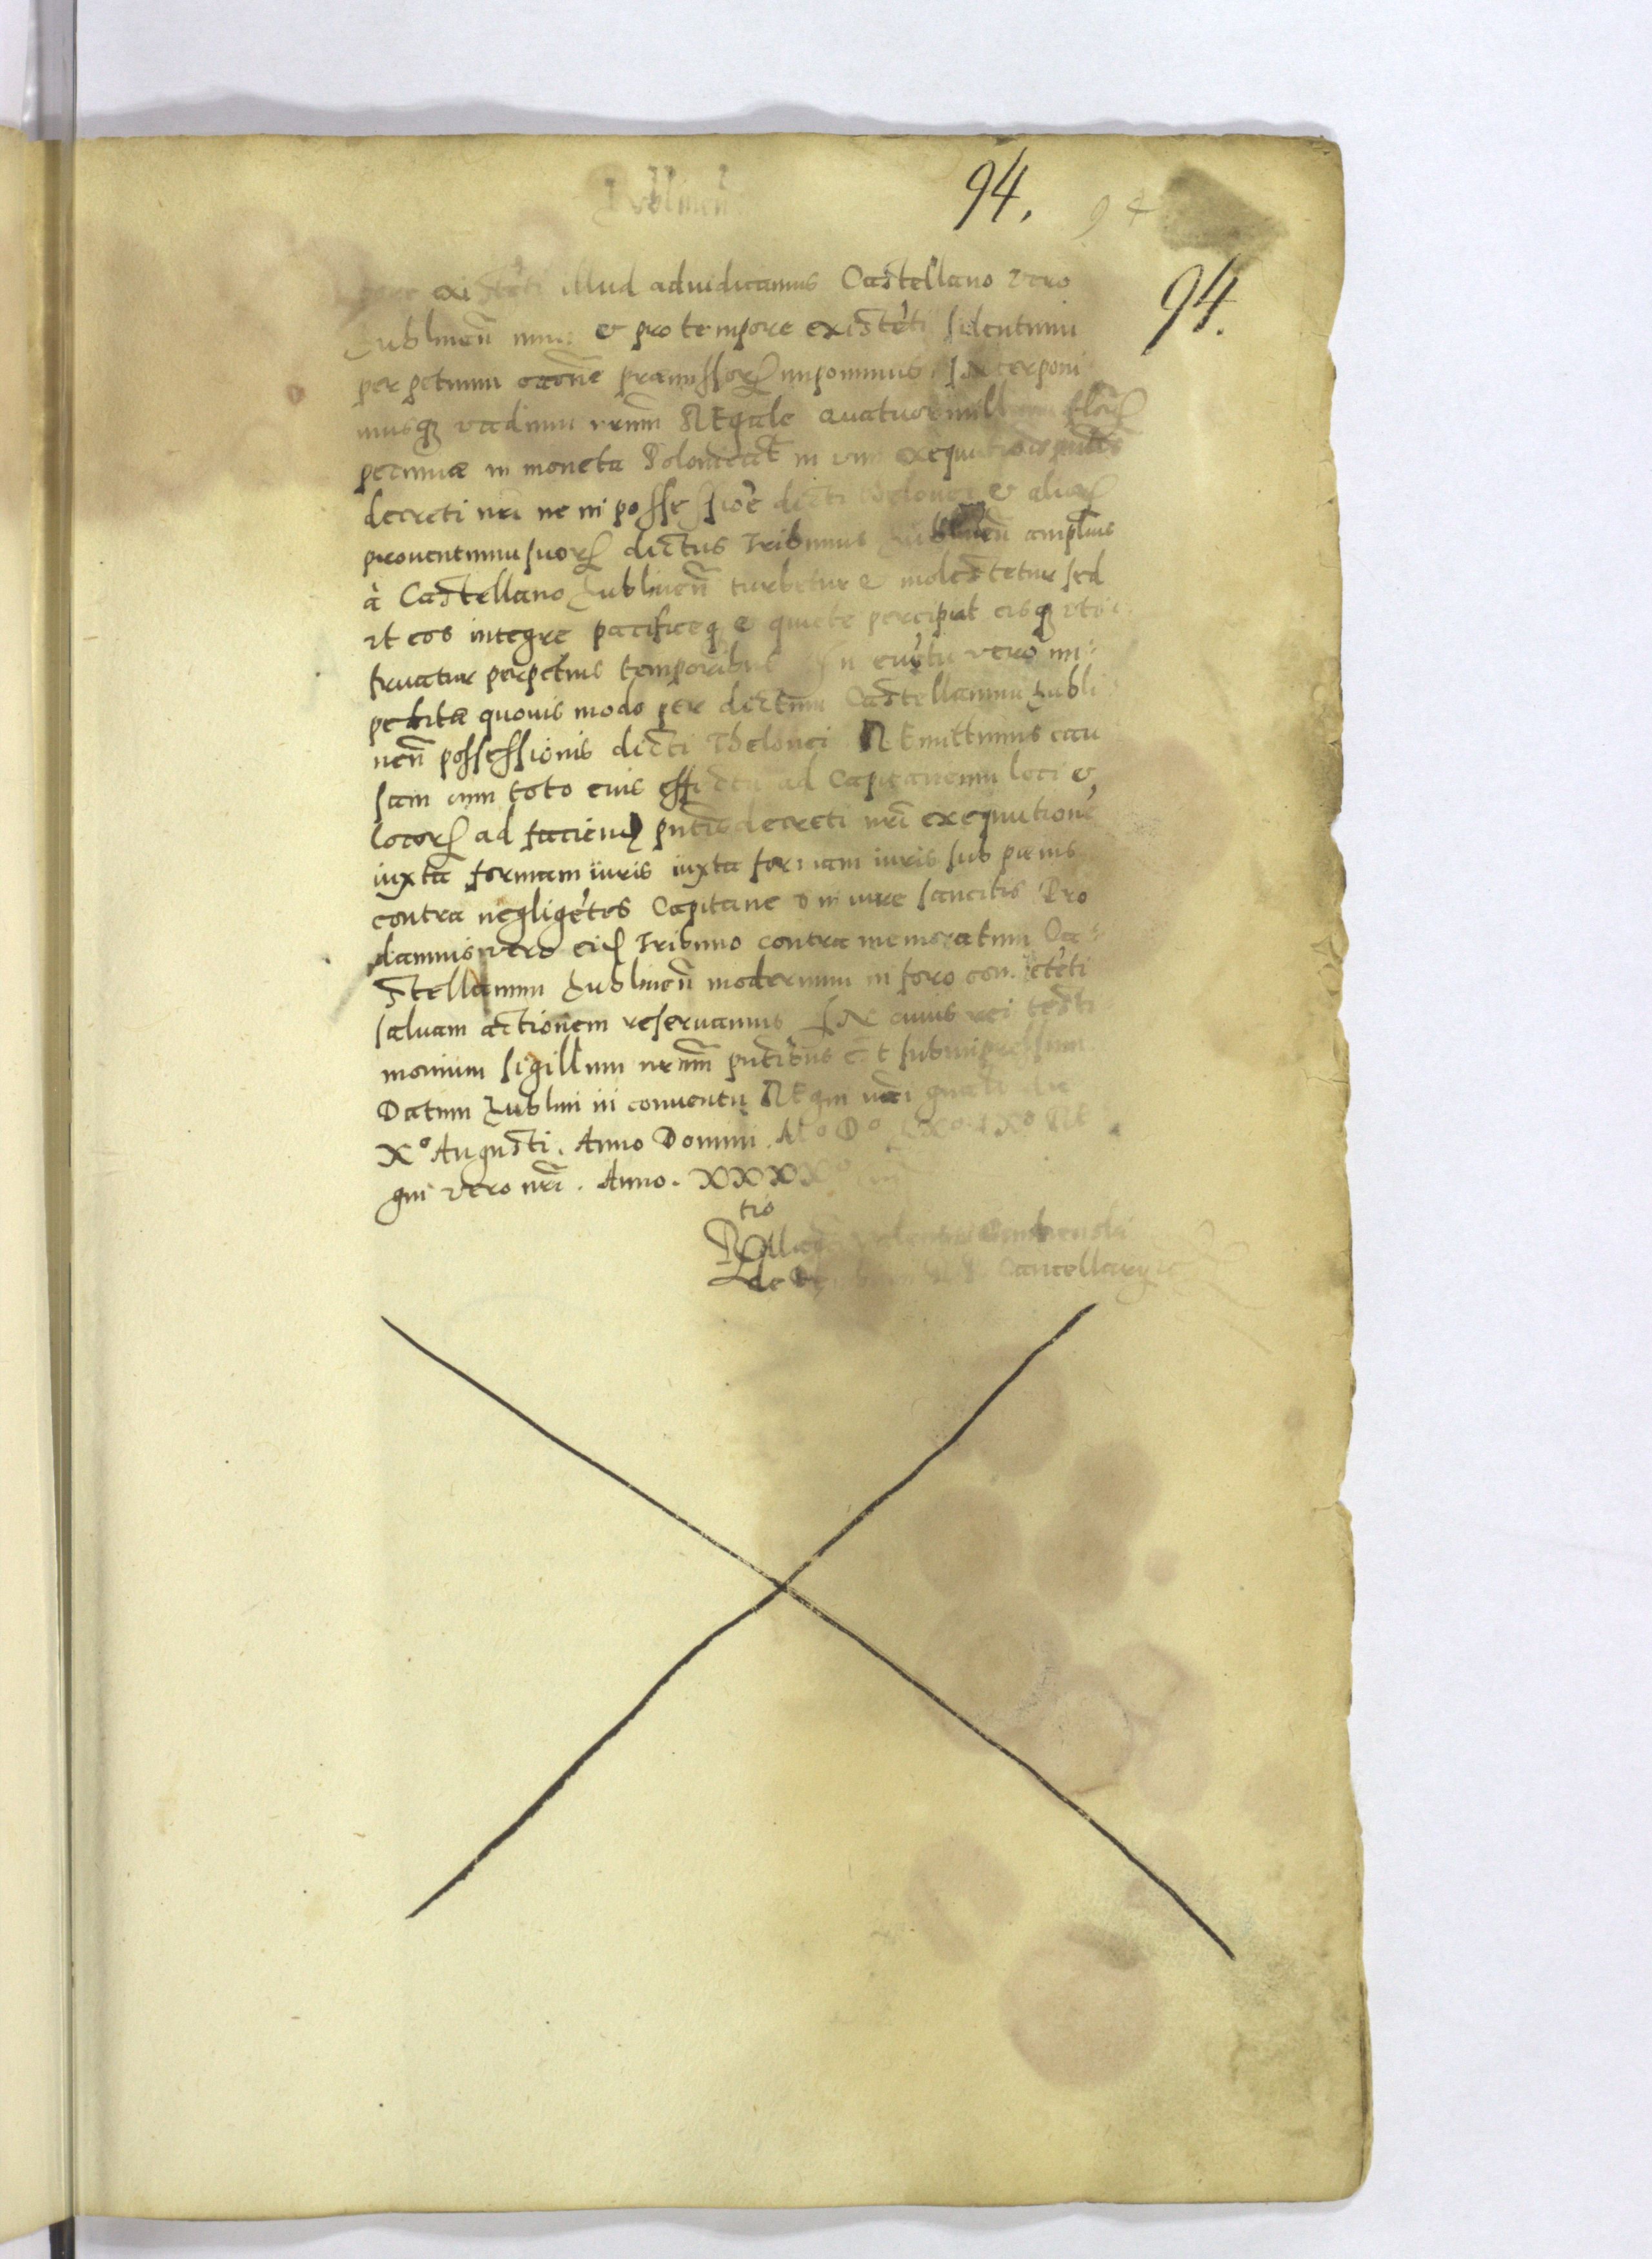 Lublinen̄
94. 94
94.
existēti illud adiudicamus Castellano vero
Lublinen̄ nunc & pro tempore existēti silentium
perpetuum rōne præmissorꝝ imponimus. INterponi
musqꝫ vadium nr̄um REgale quatuor millium florꝝ
pecuniæ in moneta Polonicat̄ in vim exequutiōis pn̄tis
decreti nr̄i ne in possessiōe dicti thelonei & aliorꝝ
prouentuum suorꝝ dictus Tribunus Lublinen̄ amplius
à Castellano Lublinen̄ turbetur & molestetur sed
vt eos integre pacificeqꝫ & quiete percipiat eisqꝫ vta
fruatur perpetuis temporibus In euētu vero im:
peditæ quouis modo per dictum Castellanum Lubli:
nen̄ possessionis dicti Thelonei REmittimus cau
sam cum toto eius effectu ad Capitaneum loci &
locorꝝ ad faciend̄ pn̄tis decreti nr̄i exequutionē
iuxta formam iuris iuxta formam iuris sub pænis
contra negligētes Capitaneos in iure sancitis Pro
damnis vero eid̄ Tribuno contra memoratum Ca:
stellanum Lublinen̄ modernum in foro competēti
saluam actionem reseruamus IN cuius rei testi
monium sigillum nr̄um pn̄tibus est subimpressum.
Datum Lublini in conuentu REgni nr̄i gn̄ali die
X° Augusti. Anno Domini. M° D° LX° IX° RE
gni vero nr̄i. Anno. XXXX°
tio
Rela Magci Valentini Dembienski
de Dembiany R. P. Cancellarij